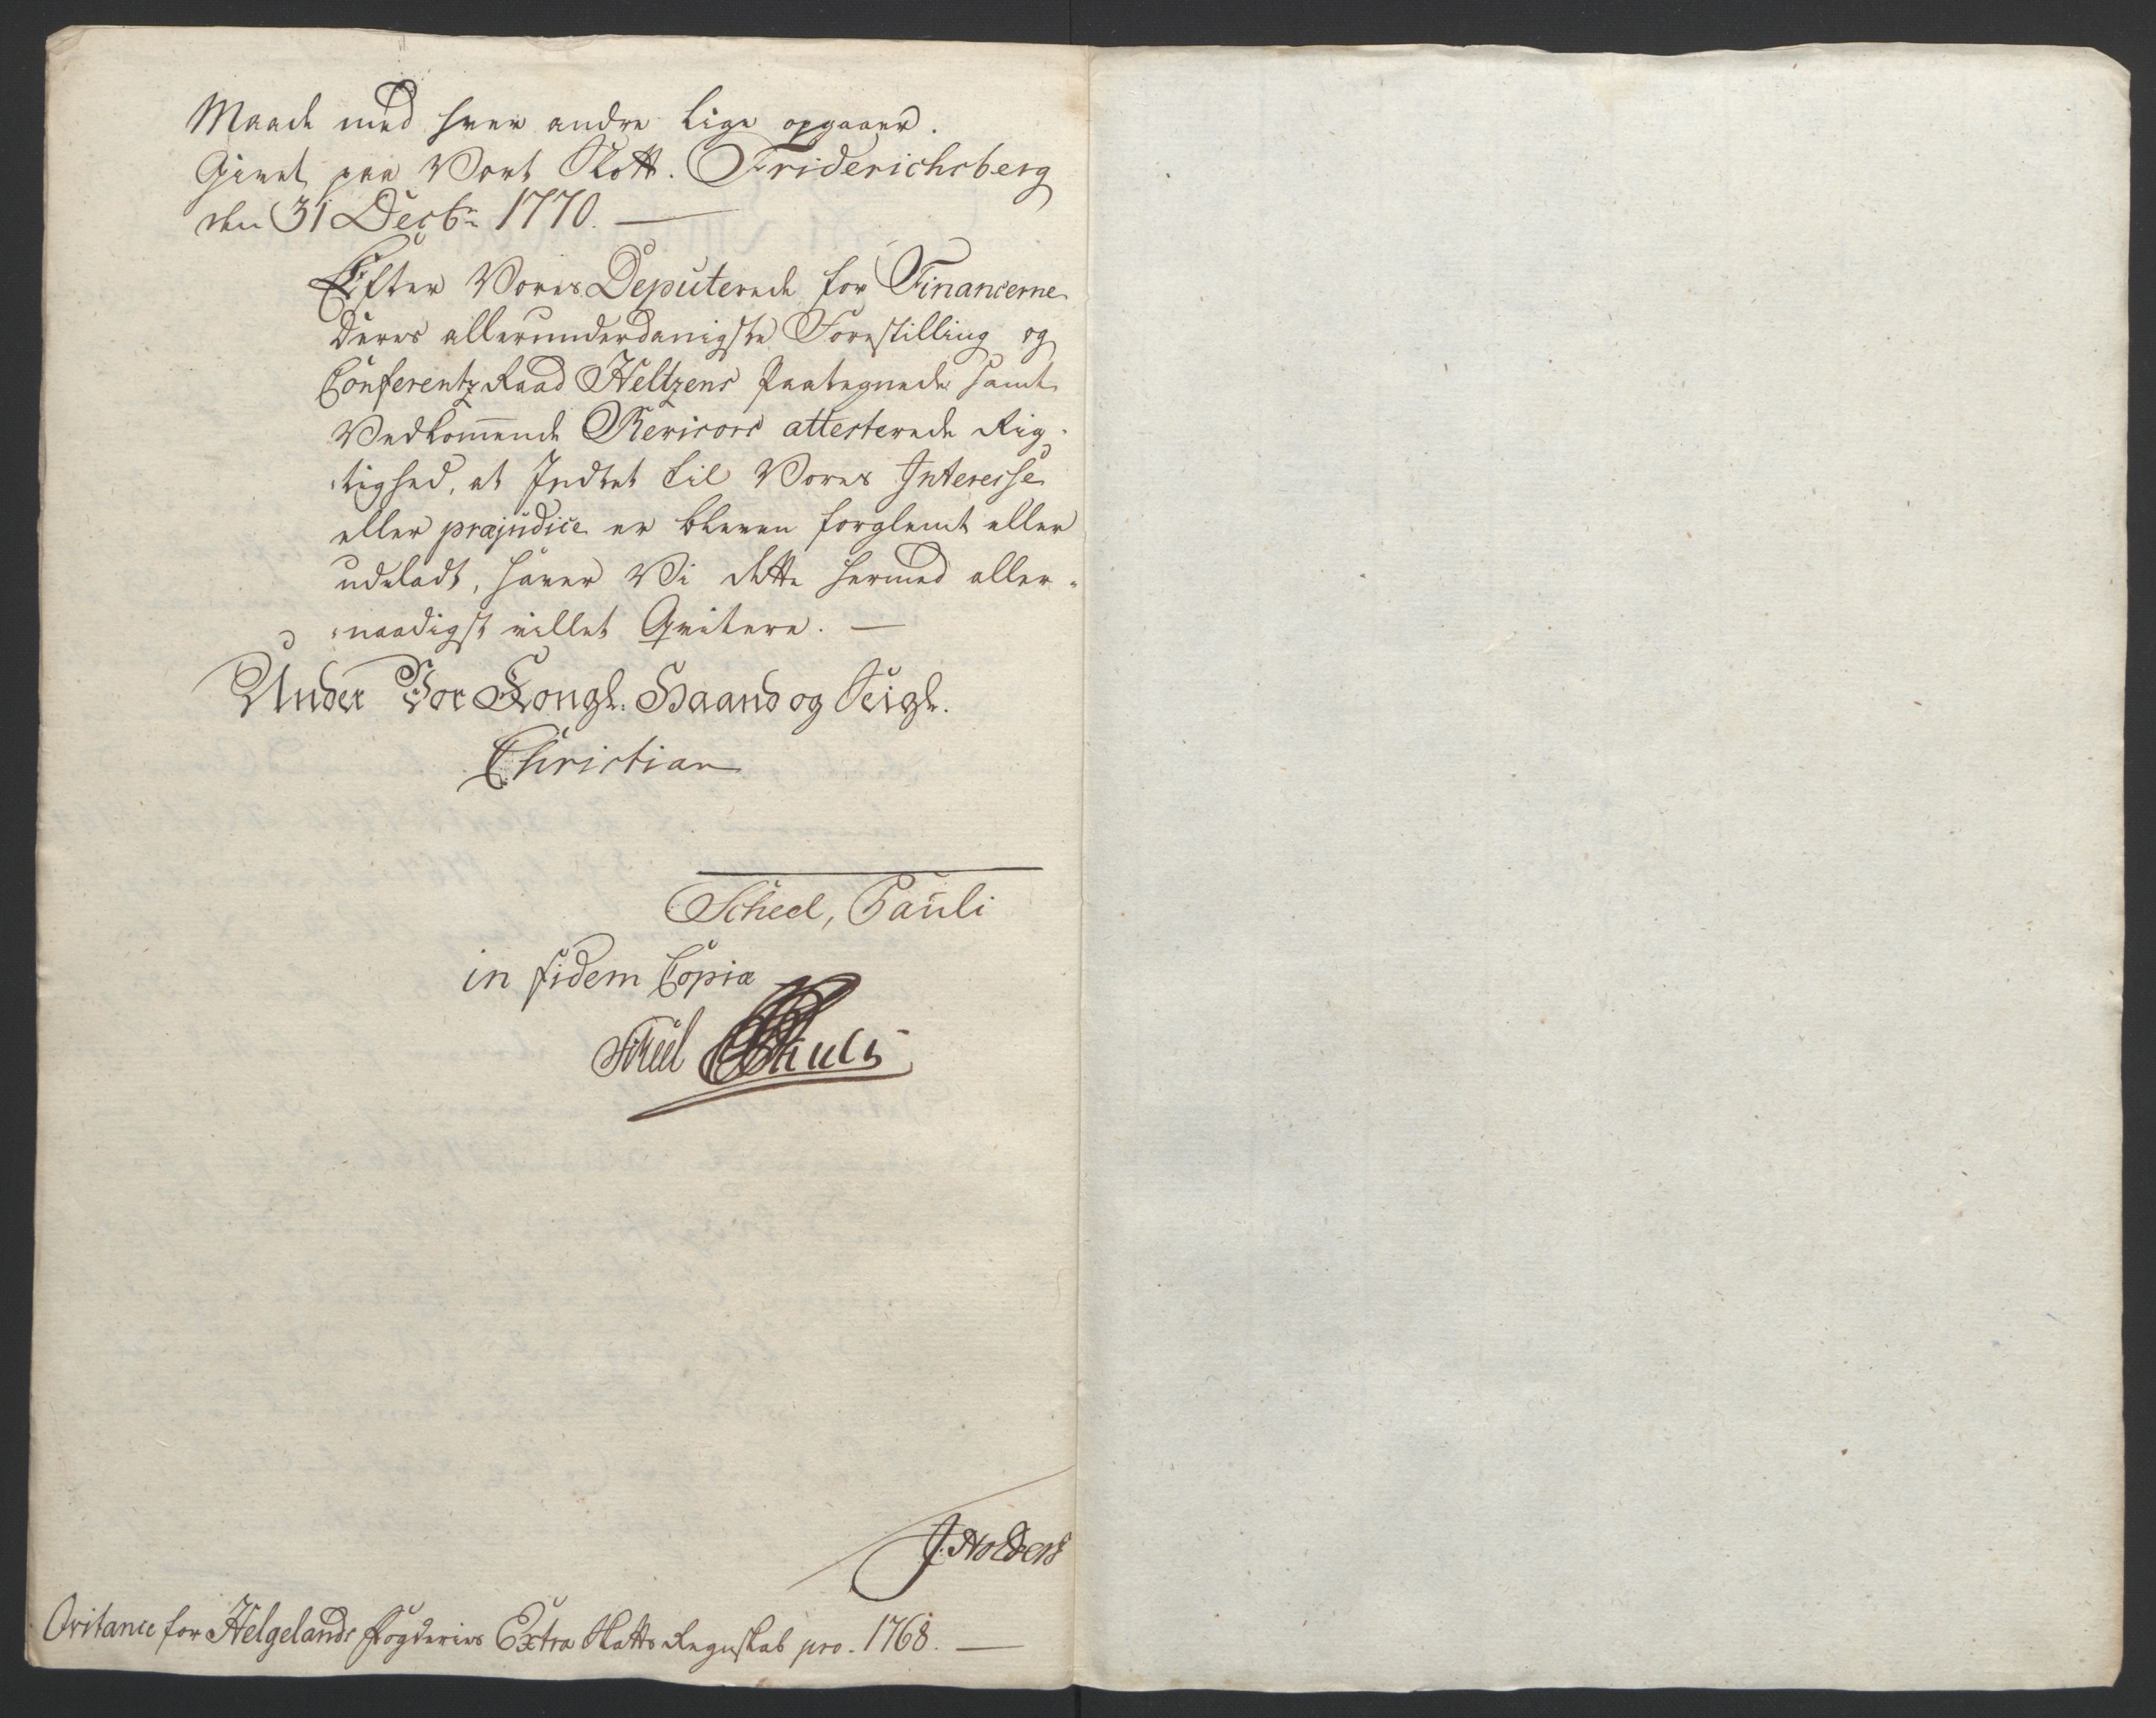 Maade med hver andre lige opgaaer.
Givet paa Vort Slott. Friderichsberg
den 31 Decbr 1770. —
Efter Vores Deputerede for Financerne
Deres allerunderdanigste Forestilling og
Conferentz Raad Heltzens Paategnede samt
Vedkommende Revisors attesterede Rig-
tighed, at Indtet til Vores Interesse
eller præjudice er bleven forglemt eller
udeladt, haver Vi dette hermed aller-
naadigst villet Qvitere. —
Under Vor Kongl. Haand og Seigl.
Christian
Scheel, Pauli
in fidem Copiæ
Scheel Pauli
Qvitance for Helgelands Fogderies Extra Skatts Regnskab pro. 1768. —